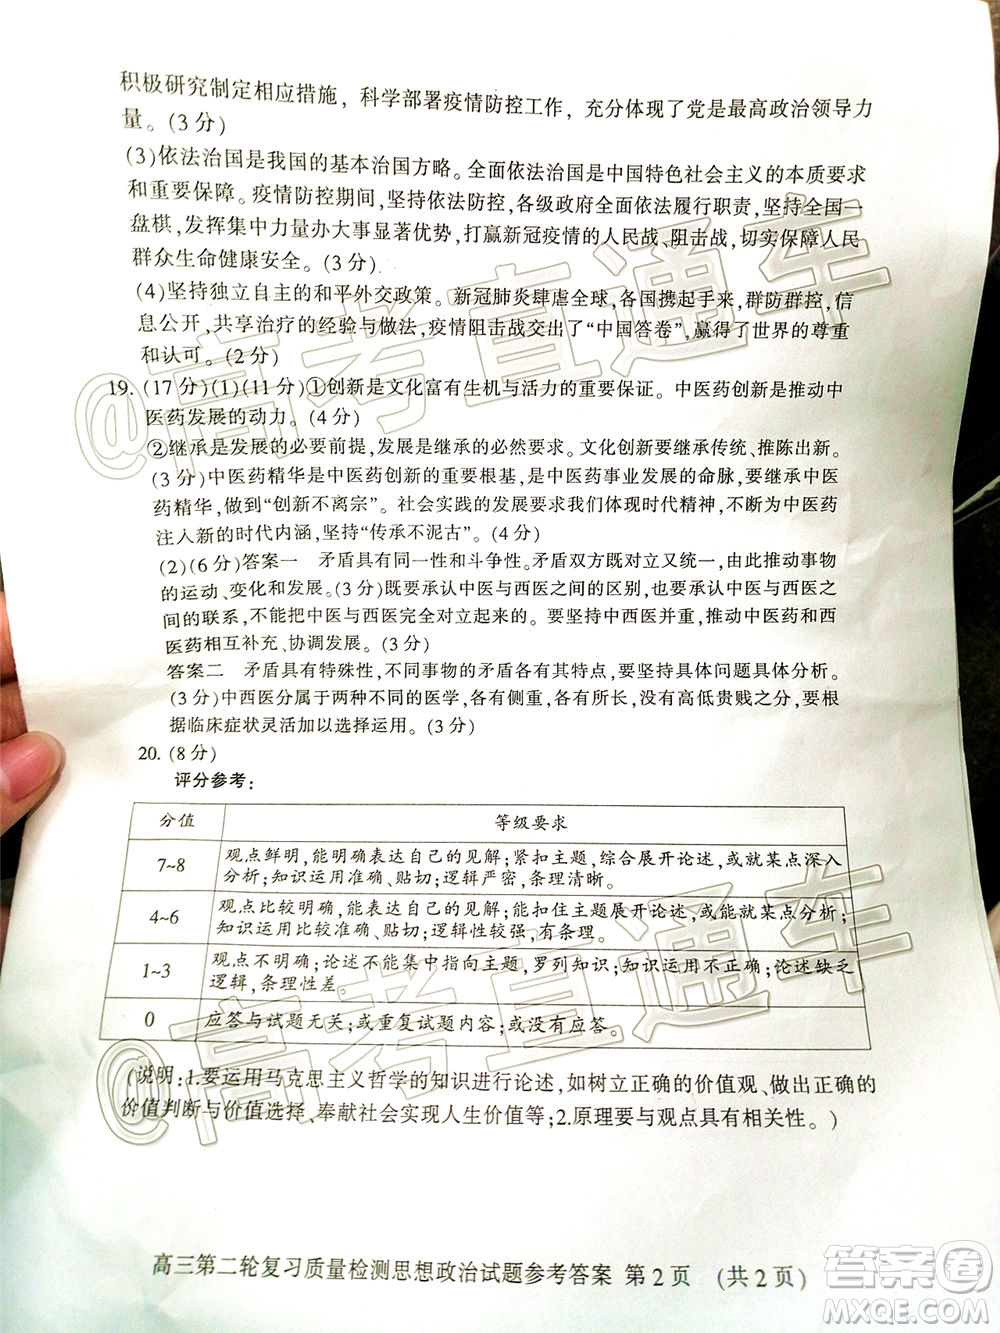 积极研究制定相应措施，科学部署疫情防控工作，充分体现了党是最高政治领导力
量。(3分)
(3)依法治国是我国的基本治国方略。全面依法治国是中国特色社会主义的本质要求
和重要保障。疫情防控期间，坚持依法防控，各级政府全面依法履行职责，坚持全国一
盘棋，发挥集中力量办大事显著优势，打赢新冠疫情的人民战、阻击战，切实保障人民
群众生命健康安全。(3分)
(4)坚持独立自主的和平外交政策。新冠肺炎肆虐全球，各国携起手来，群防群控，信
息公开，共享治疗的经验与做法，疫情阻击战交出了“中国答卷”，赢得了世界的尊重
和认可。(2分)
19. (17分)(1)(11分)①创新是文化富有生机与活力的重要保证。中医药创新是推动中
医药发展的动力。(4分)
②继承是发展的必要前提，发展是继承的必然要求。文化创新要继承传统、推陈出新。
(3分)中医药精华是中医药创新的重要根基，是中医药事业发展的命脉，要继承中医
药精华，做到“创新不离宗”。社会实践的发展要求我们体现时代精神，为中医药
注入新的时代内涵，坚持“传承不泥古”。(4分)
(2)(6分)答案一 矛盾具有同一性和斗争性。矛盾双方既对立又统一，由此推动事物
的运动、变化和发展。(3分)既要承认中医与西医之间的区别，也要承认中医与西医之
间的联系，不能将中医与西医完全对立起来。要坚持中西医并重，推动中医药和西
医药相互补充、协调发展。(3分)
答案二 矛盾具有特殊性，不同事物的矛盾各有其特点，要坚持具体问题具体分析。
(3分)中西医分属于两种不同的医学，各有侧重，各有所长，没有高低贵贱之分，要根
据临床症状灵活加以选择运用。(3分)
20. (8分)
评分参考：
分值 等级要求
7~8 观点鲜明，能明确表达自己的见解；紧扣主题，综合展开论述，或就某点深入
分析；知识运用准确、贴切；逻辑严密，条理清晰。
4~6 观点比较明确，能表达自己的见解；能扣住主题展开论述，或能就某点分析；
知识运用比较准确、贴切；逻辑性较强，有条理。
1~3 观点不明确；论述不能集中指向主题，罗列知识；知识运用不正确；论述缺乏
逻辑，条理性差。
0 应答与试题无关；或重复试题内容；或没有应答。
(说明：1.要运用马克思主义哲学的知识进行论述，如树立正确的价值观、做出正确的
价值判断与价值选择、奉献社会实现人生价值等；2.原理要与观点具有相关性。)
高三第二轮复习质量检测思想政治试题参考答案 第2页 (共2页)
@高考直通车
@高考直通车
答案圈
MXQE.COM